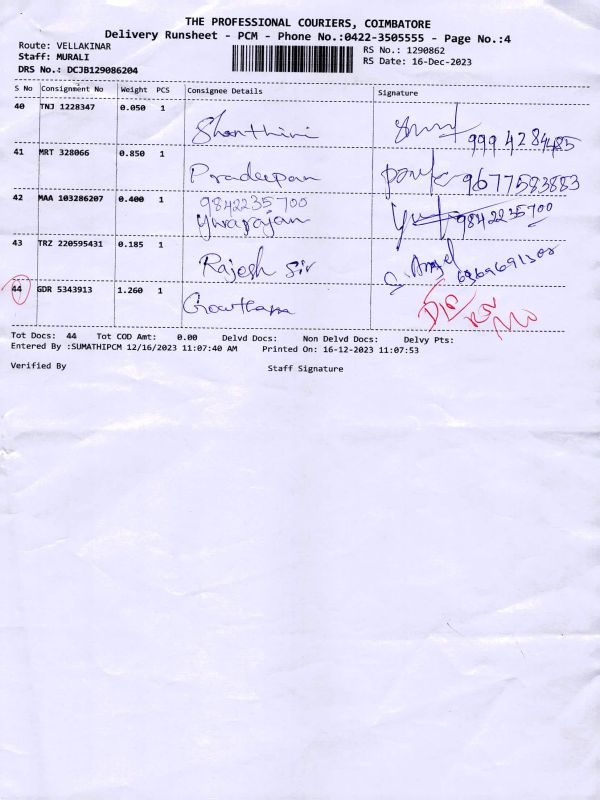 THE PROFESSIONAL COURIERS, COIMBATORE
Delivery Runsheet - PCM - Phone No.:0422-3505555 - Page No.:4
Route: VELLAKINAR
RS No.: 1290862
Staff: MURALI
RS Date: 16-Dec-2023
DRS No.: DCJB129086204
S No Consignment No Weight PCS Consignee Details Signature
40 TNJ 1228347 0.050 1
Shanthini 999 4284485
41 MRT 328066 0.850 1
Pradeepan 9677583883
42 MAA 103286207 0.400 1
9842235700
Yuvarajan 9842235700
43 TRZ 220595431 0.185 1
Rajesh Sir
44 GDR 5343913 1.260 1
Tot Docs: 44 Tot COD Amt: 0.00 Delvd Docs: Non Delvd Docs: Delvy Pts:
Entered By :SUMATHIPCM 12/16/2023 11:07:40 AM Printed On: 16-12-2023 11:07:53
Verified By Staff Signature